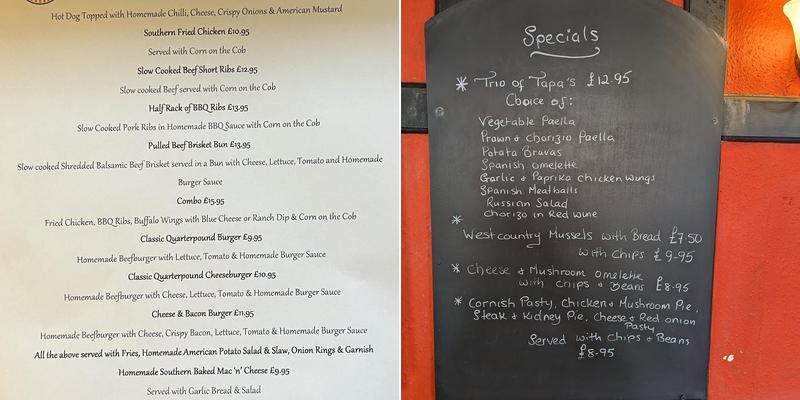 Hot Dog Topped with Homemade Chilli, Cheese, Crispy Onions & American Mustard
Southern Fried Chicken £10.95
Served with Corn on the Cob
Slow Cooked Beef Short Ribs £12.95
Slow cooked Beef served with Corn on the Cob
Half Rack of BBQ Ribs £13.95
Slow Cooked Pork Ribs in Homemade BBQ Sauce with Corn on the Cob
Pulled Beef Brisket Bun £13.95
Slow cooked Shredded Balsamic Beef Brisket served in a Bun with Cheese, Lettuce, Tomato and Homemade
Burger Sauce
Combo £15.95
Fried Chicken, BBQ Ribs, Buffalo Wings with Blue Cheese or Ranch Dip & Corn on the Cob
Classic Quarterpound Burger £9.95
Homemade Beefburger with Lettuce, Tomato & Homemade Burger Sauce
Classic Quarterpound Cheeseburger £10.95
Homemade Beefburger with Cheese, Lettuce, Tomato & Homemade Burger Sauce
Cheese & Bacon Burger £11.95
Homemade Beefburger with Cheese, Crispy Bacon, Lettuce, Tomato & Homemade Burger Sauce
All the above served with Fries, Homemade American Potato Salad & Slaw, Onion Rings & Garnish
Homemade Southern Baked Mac 'n' Cheese £9.95
Served with Garlic Bread & Salad
Specials
* Trio of Tapa's £12.95
Choice of:
Vegetable Paella
Prawn & Chorizio Paella
Potata Bravas
Spanish omelette
Garlic & Paprika chicken wings
Spanish Meatballs
Russian Salad
Chorizo in Red wine
*
Westcountry Mussels with Bread £7.50
with chips £9.95
* Cheese & Mushroom omelette
with chips & Beans £8.95
* Cornish Pasty, Chicken & Mushroom Pie,
Steak & Kidney Pie, Cheese & Red onion
Pasty
Served with chips & Beans
£8.95